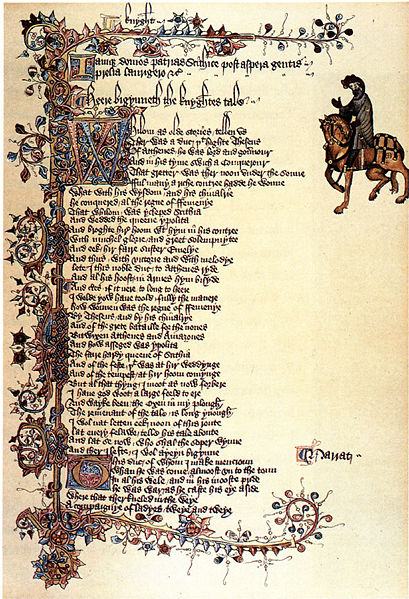 knyght
Iamqȝ domos patrias Sithice post aspera gentis
prelia laurigero &c
Heere bigynneth the knyghtes tale
Whilom as olde stories tellen us
Ther was a duc þt highte Theseus
Of Atthenes he was lord and gouernour
And in his tyme swich a Conquerour
That gretter was ther noon vnder the sonne
Ful many a riche contree hadde he wonne
What with his wysdom and his chiualrie
He conquered al the regne of ffemenye
That whilom was ycleped Scithia
And wedded the queene ypolita
And broghte hire hoom wt hym in his contree
With muchel glorie and greet solempnytee
And eek hir faire suster Emelye
And thus with victorie and with melodye
Lete I this noble duc to Atthenes ryde
And al his hoost in Armes hym bisyde
And certes if it nere to long to heere
I wolde yow haue toold fully the manere
How wonnen was the regne of ffemenye
By Theseus and by his chiualrye
And of the grete bataille for the nones
Bitwixen Atthenes and Amazones
And how asseged was ypolita
The faire hardy queene of Scithia
And of the feste þt was at hir weddynge
And of the tempest at hir hoom comynge
But al that thyng I moot as now forbere
I haue god woot a large feeld to ere
And wayke been the oxen in my plough
The remenant of the tale is long ynough
I wol nat letten eek noon of this route
Lat euery felawe telle his tale aboute
And lat se now who shal the soper wynne
And ther I lefte I wol ayeyn bigynne
This duc of whom I make mencioun
Narrat
Whan he was come almoost vn to the toun
In al his wele and in his mooste pride
He was war as he caste his eye aside
Where that ther kneled in the weye
A compaignye of ladyes tweye and tweye